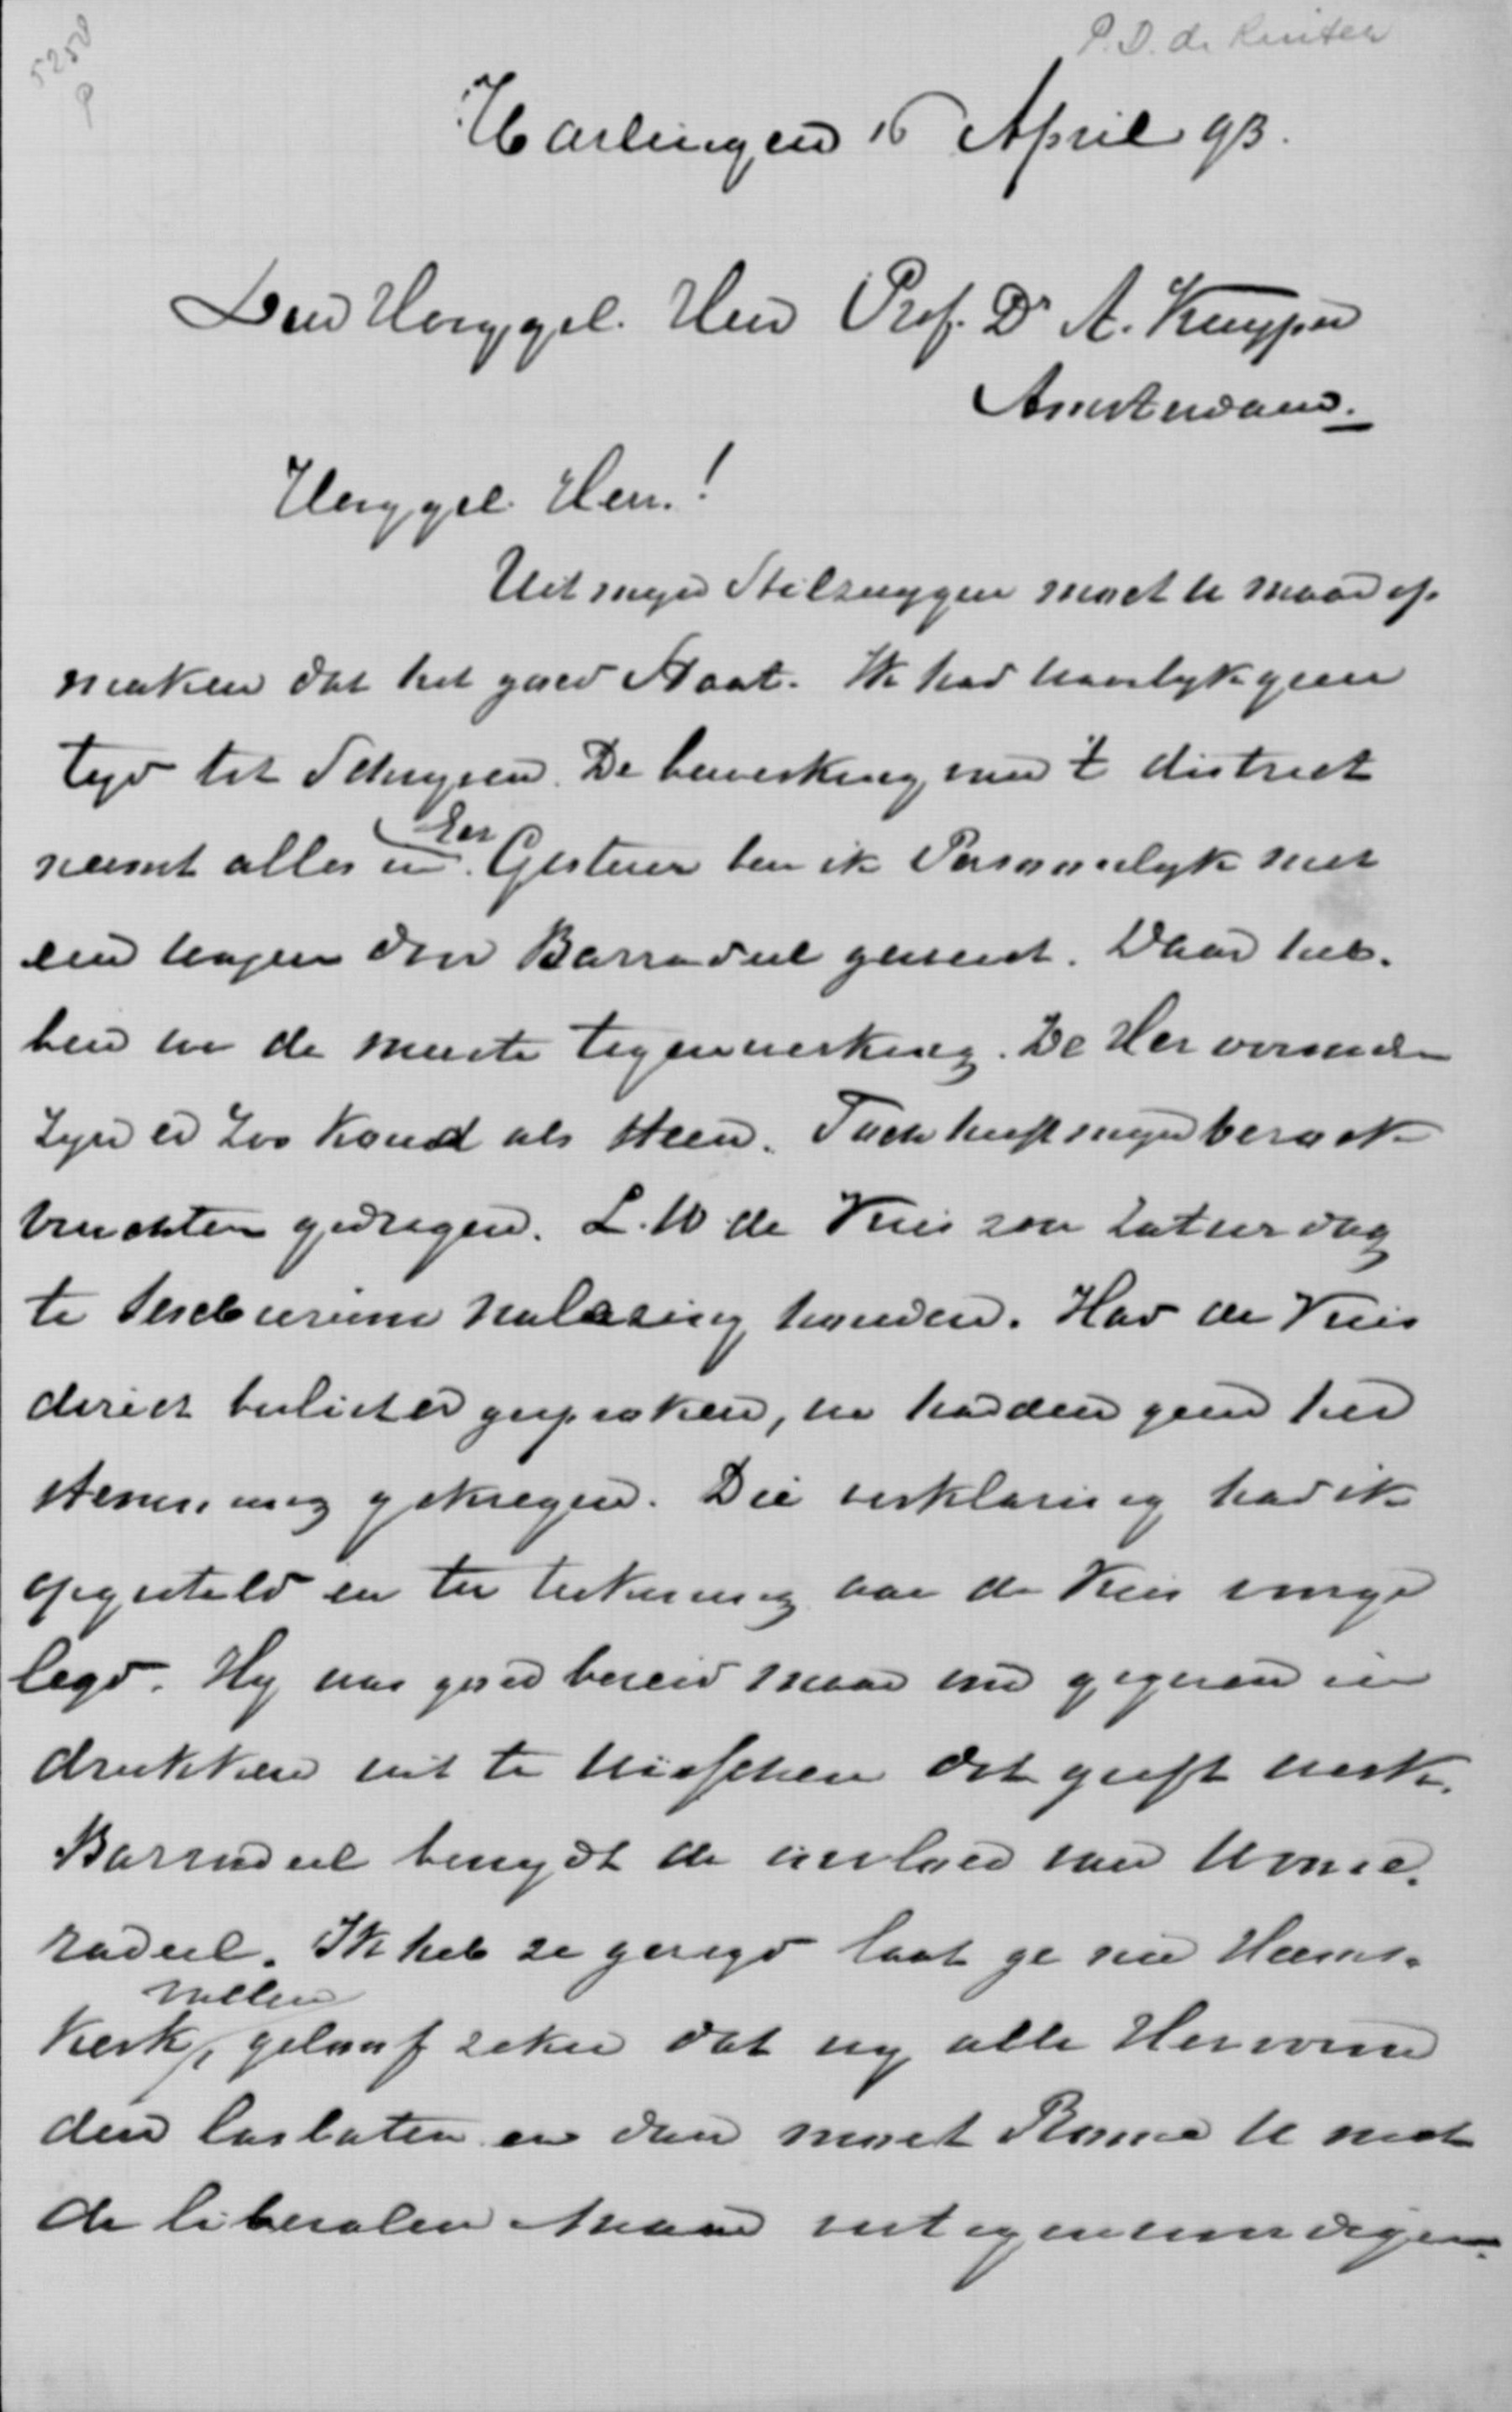 5258
P
P.D. de Ruiter
Harlingen 16 April 93.
Den Hooggel. Heer Prof. Dr A. Kuyper
Amsterdam.
Hooggel. Heer!
Uit mijn Stilzwygen moet U maar op
maken dat het goed Staat. Ik had namelyk geen
tyd tot Schryven. De bewerking van 't district
neemt alles in. Eer Gisteren ben ik Persoonlyk met
een wagen door Barradeel geweest. Daar heb.
ben we de meeste tegenwerking. De Hervormden
Zyn er Zoo Koud als Steen. Toch heeft myn bezoek
vruchten gedragen. L. W. de Vries zou Zaterdag
te Sexbierum nalezing houden. Had de Vries
direct beslister gesproken, we hadden geen her
stemming gekregen. Die verklaring had ik
opgesteld en ter tekening aan de Vries voorge
legd. Hy was goed bereid maar om gegeven in
drukken uit te wisschen dat geeft werk.
Barradeel benydt de invloed van Wonse.
radeel. Ik heb ze gezegd laat ge nu Heems.
Kerk vallen, geloof zeker dat wy alle Hervorm
den loslaten en dan moet Rome U met
de liberalen maar vertegenwoordigen.